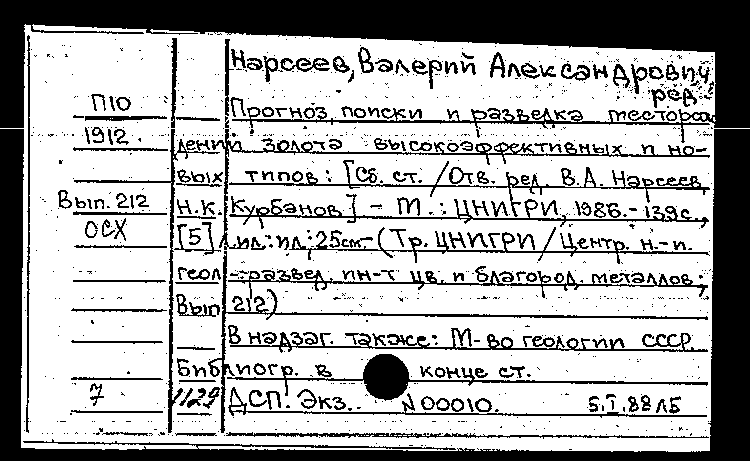 Нарсеев, Валерий Александрович,
ред.
П10
Прогноз, поиски и разведка месторож
1912.
дений золота высокоэффективных и но-
вых типов: [Сб. ст. / Отв. ред. В.А. Нарсеев,
Вып. 212
Н.К. Курбанов] - М.: ЦНИГРИ, 1986. - 139с.,
ОСХ
[5] л.ил.: ил; 25см. - (Тр. ЦНИГРИ / Центр. н.-и.
геол. - развед. ин-т цв. и благород. металлов;
Вып. 212)
В надзаг. также: М-во геологии СССР.
Библиогр. в конце ст.
7
1129
ДСП. Экз. N 00010.
5.I.88 ЛБ